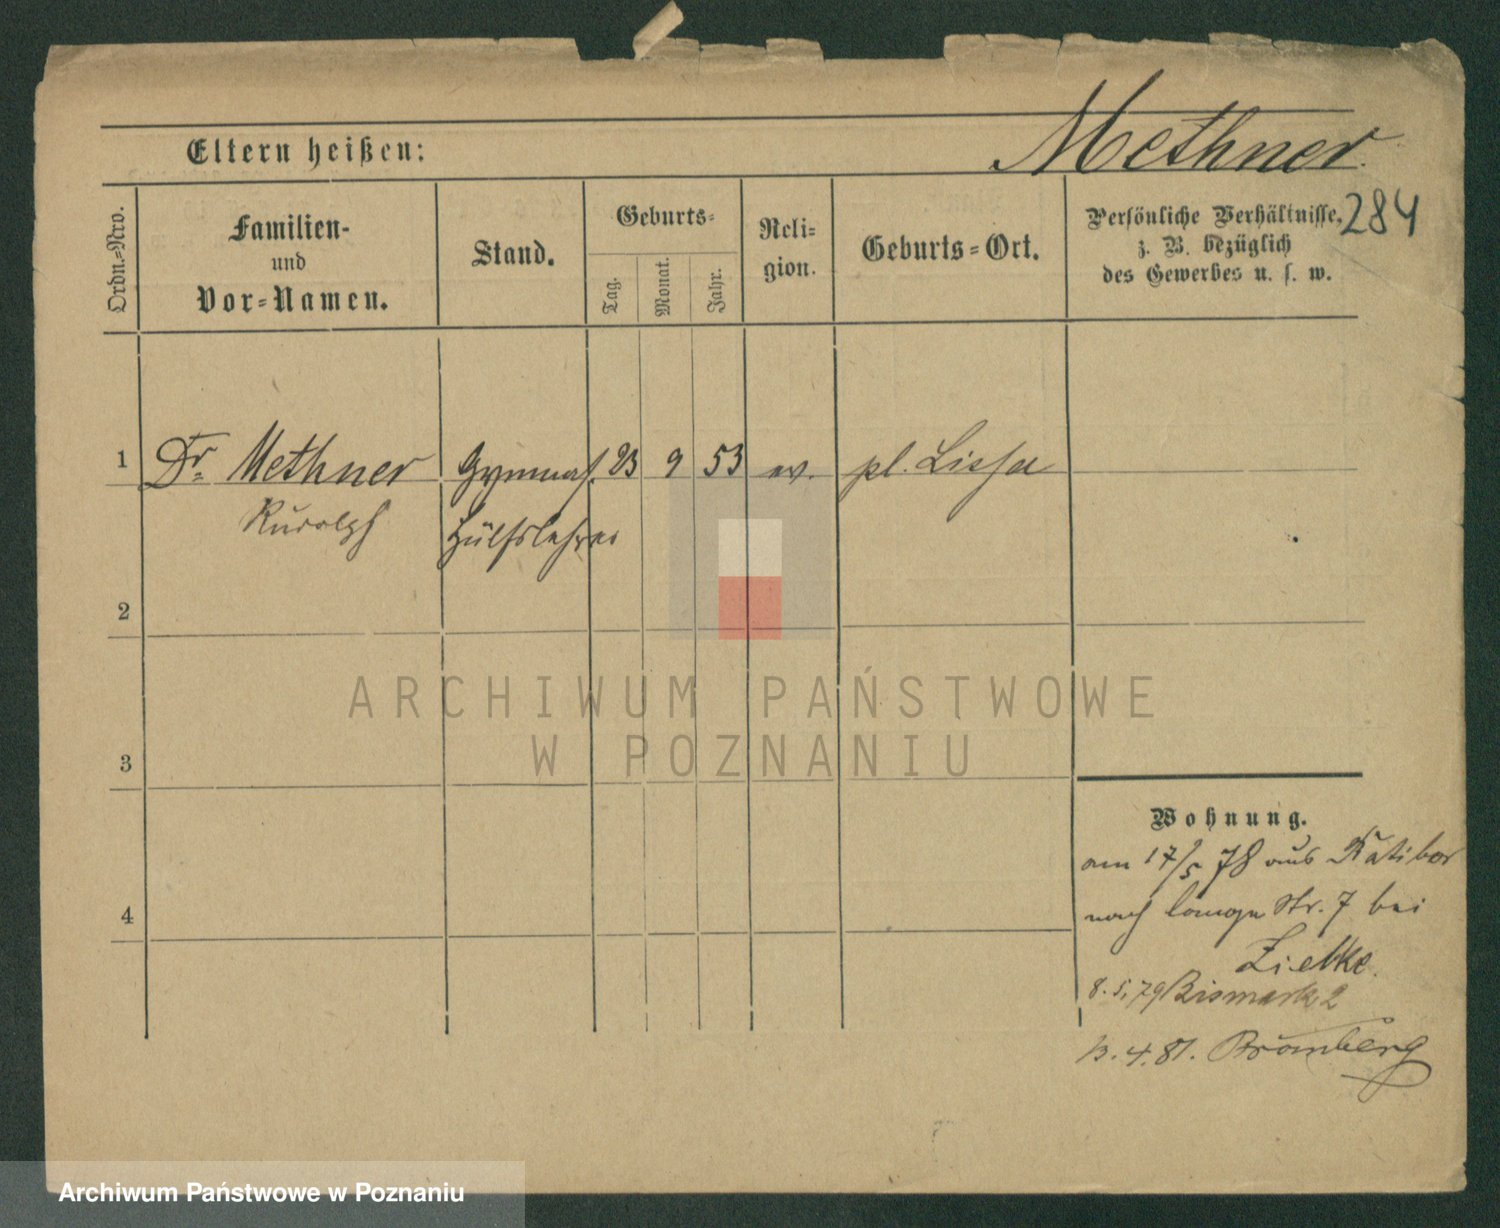 Methner
Eltern heißen:
284
Ordn.-Nro.
Familien-
und
Vor-Namen.
Stand.
Geburts-
Tag.
Monat.
Jahr.
Reli-
gion.
Geburts-Ort.
Persönliche Verhältnisse,
z. B. bezüglich
des Gewerbes u. s. w.
1 Dr. Methner Gymnas. 23 9 53 ev. pl. Lissa
Rudolph Hülfslehrer
2
3
4
Wohnung.
am 17/5 78 aus Ratibor
nach lange Str. 7 bei
Zielke.
8.5.79 Bismark 2
13.4.81. Bromberg
ARCHIWUM PAŃSTWOWE
W POZNANIU
Archiwum Państwowe w Poznaniu